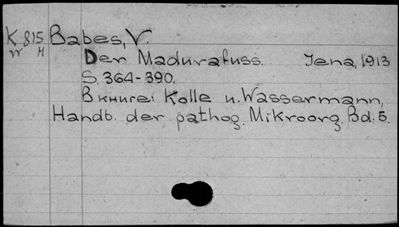 K 815 Babes, V.
W H
Der Madurafuss. Jena, 1913
S. 364-390.
В книге: Kolle u. Wassermann,
Handb. der pathog. Mikroorg. Bd. 5.